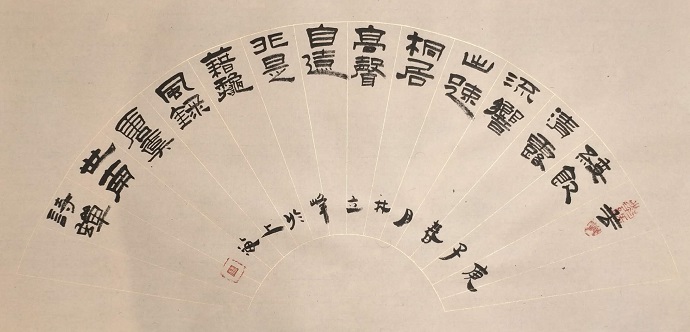 垂
緌飲
清露
流響
出踈
桐居
高聲
自遠
非是
藉龝
風錄
唐虞
世南
詩蟬
庚子春月林立峯於上海